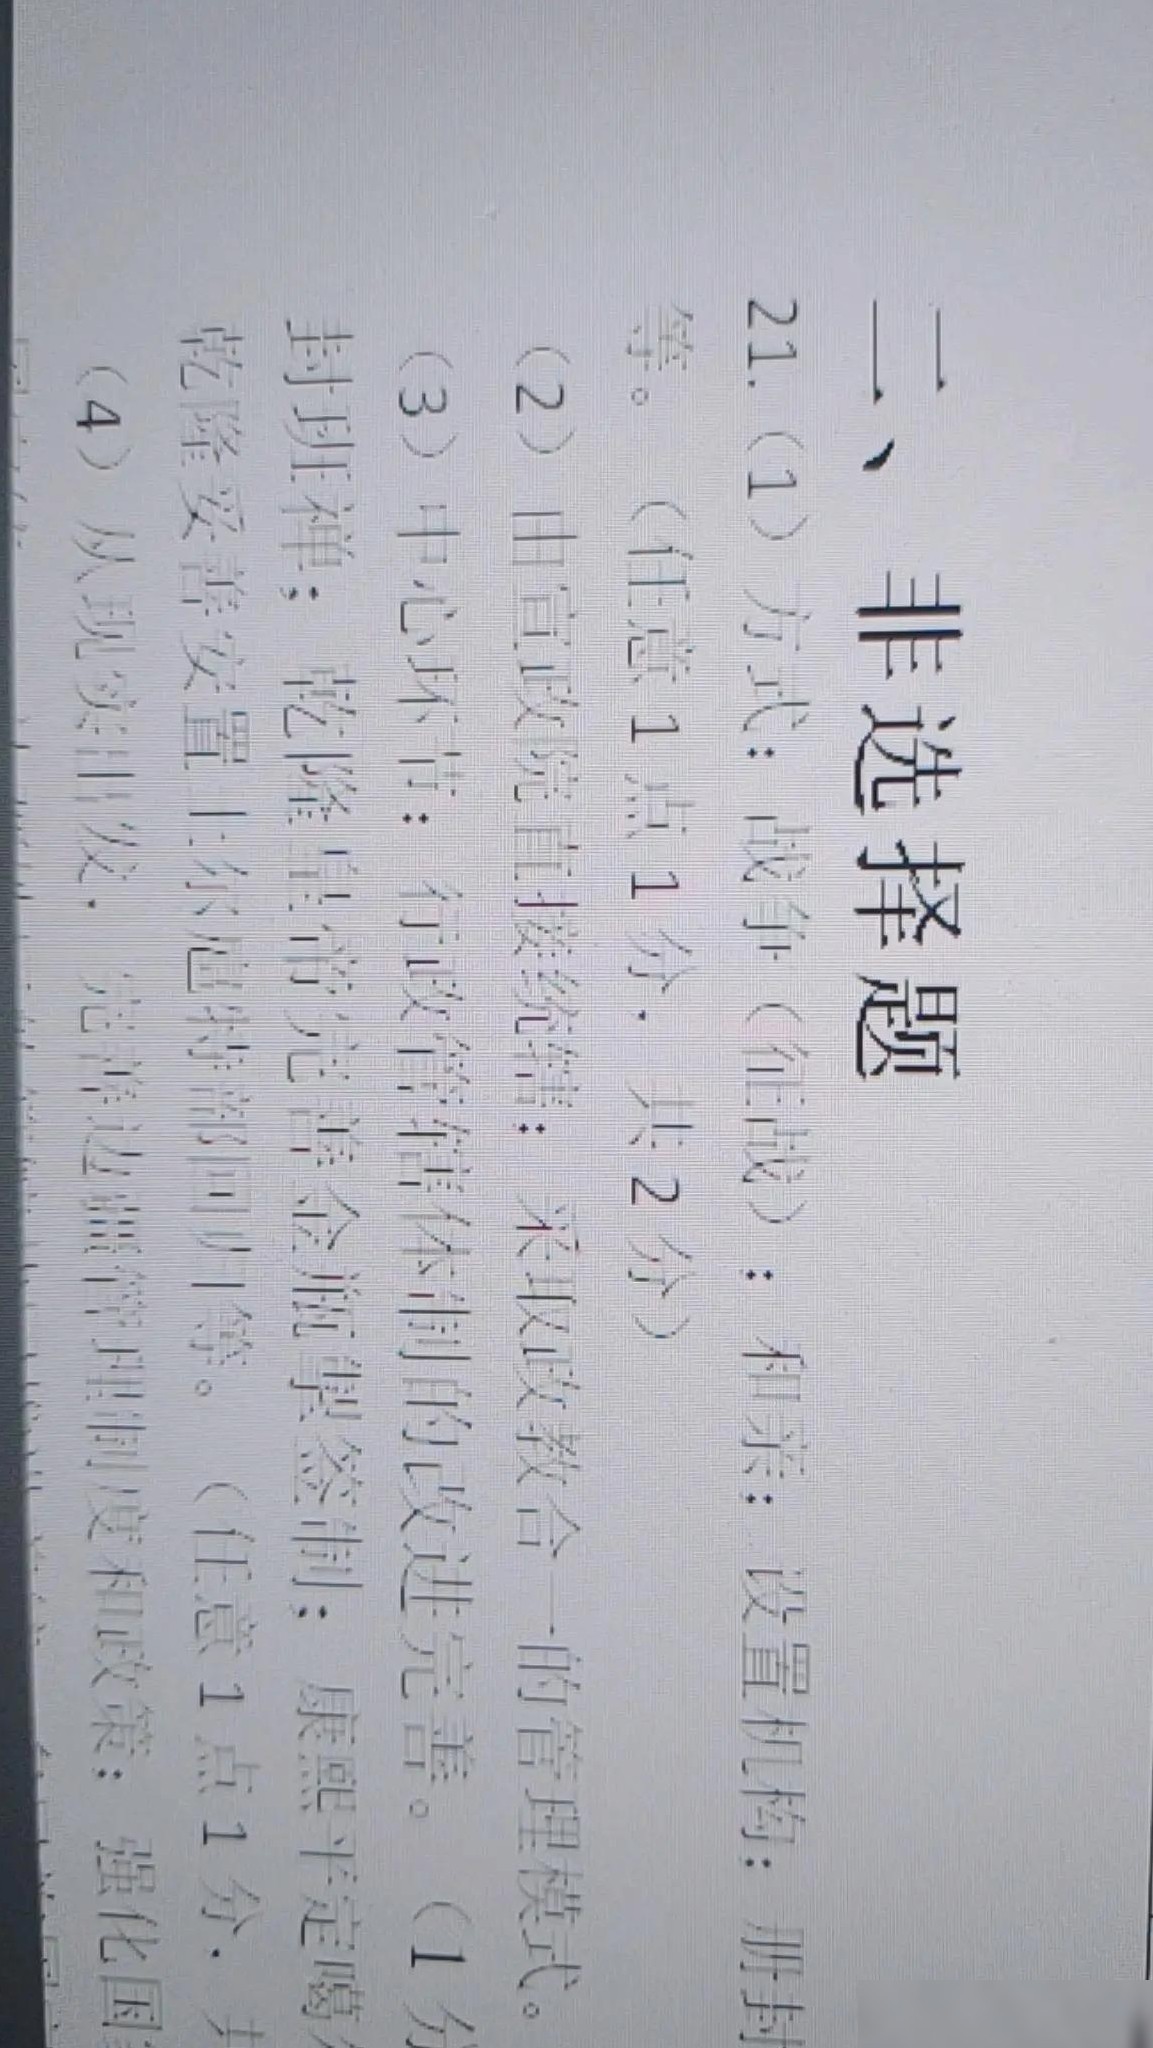 二、非选择题
21.（1）方式：战争（征战）；和亲；设置机构；册封
等。（任意1点1分，共2分）
（2）由宣政院直接统辖；采取政教合一的管理模式。
（3）中心环节：行政管辖体制的改进完善。（1分
封班禅；乾隆皇帝完善金瓶掣签制；康熙平定噶
乾隆妥善安置土尔扈特部回归等。（任意1点1分，共
（4）从现实出发，完善边疆管理制度和政策；强化国